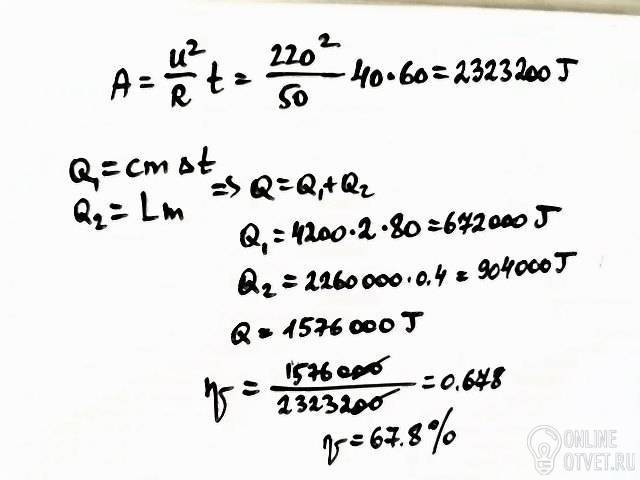 A = u²/R t = 220²/50 40·60 = 2323200 J
Q₁ = cm Δt
Q₂ = Lm => Q = Q₁+Q₂
Q₁ = 4200·2·80 = 672000 J
Q₂ = 2260000·0.4 = 904000 J
Q = 1576000 J
η = 1576000/2323200 = 0.678
η = 67.8%
ONLINE
OTVET.RU